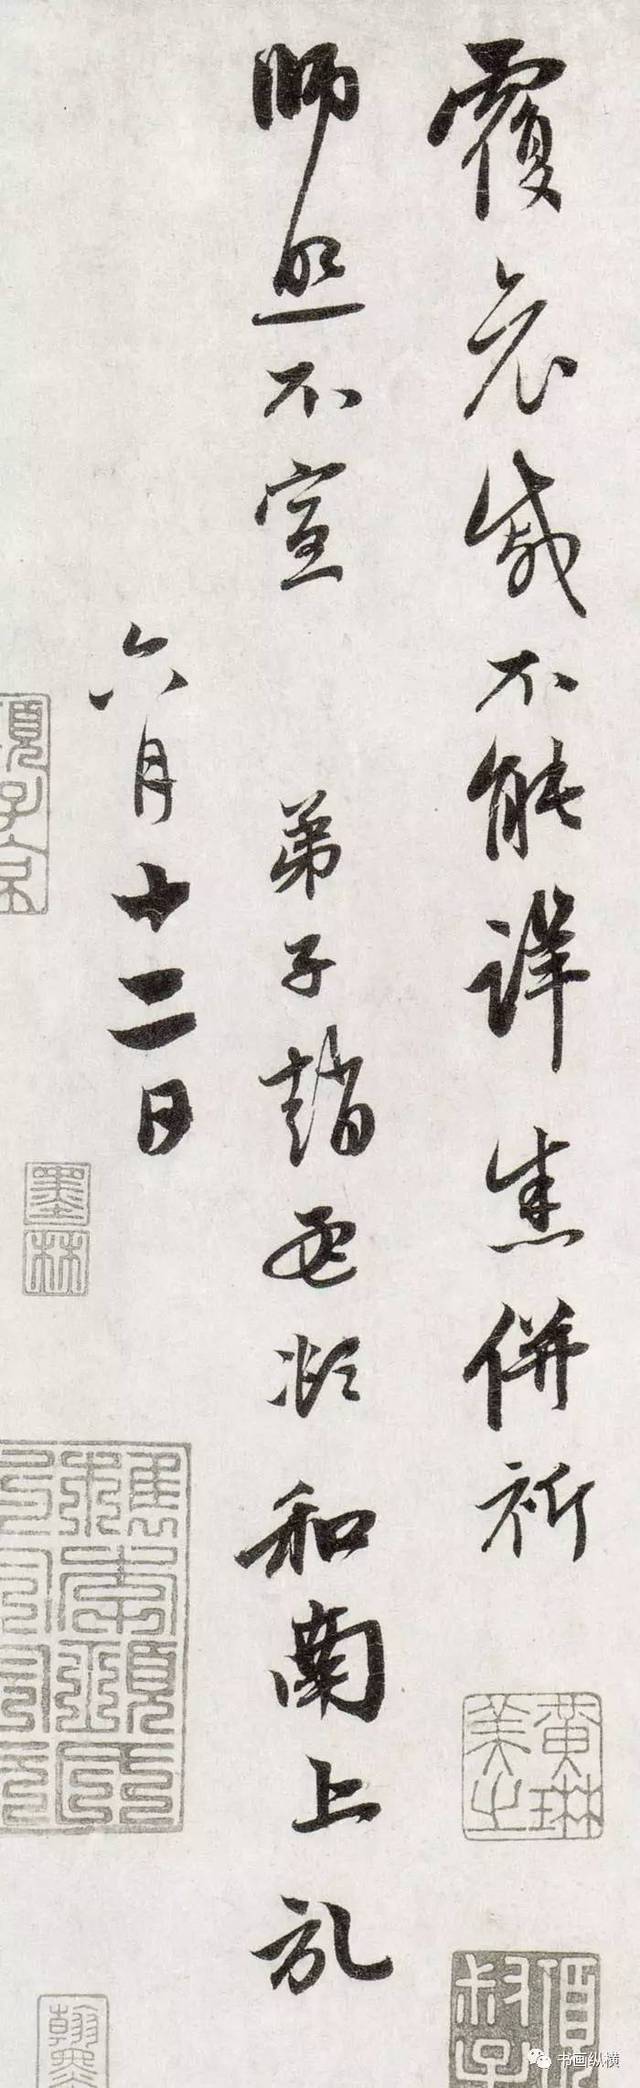 覆哀戚不能詳悉併祈
師照不宣 弟子趙孟頫和南上
六月十二日
黃琳美之
項子京
墨林
书画纵横